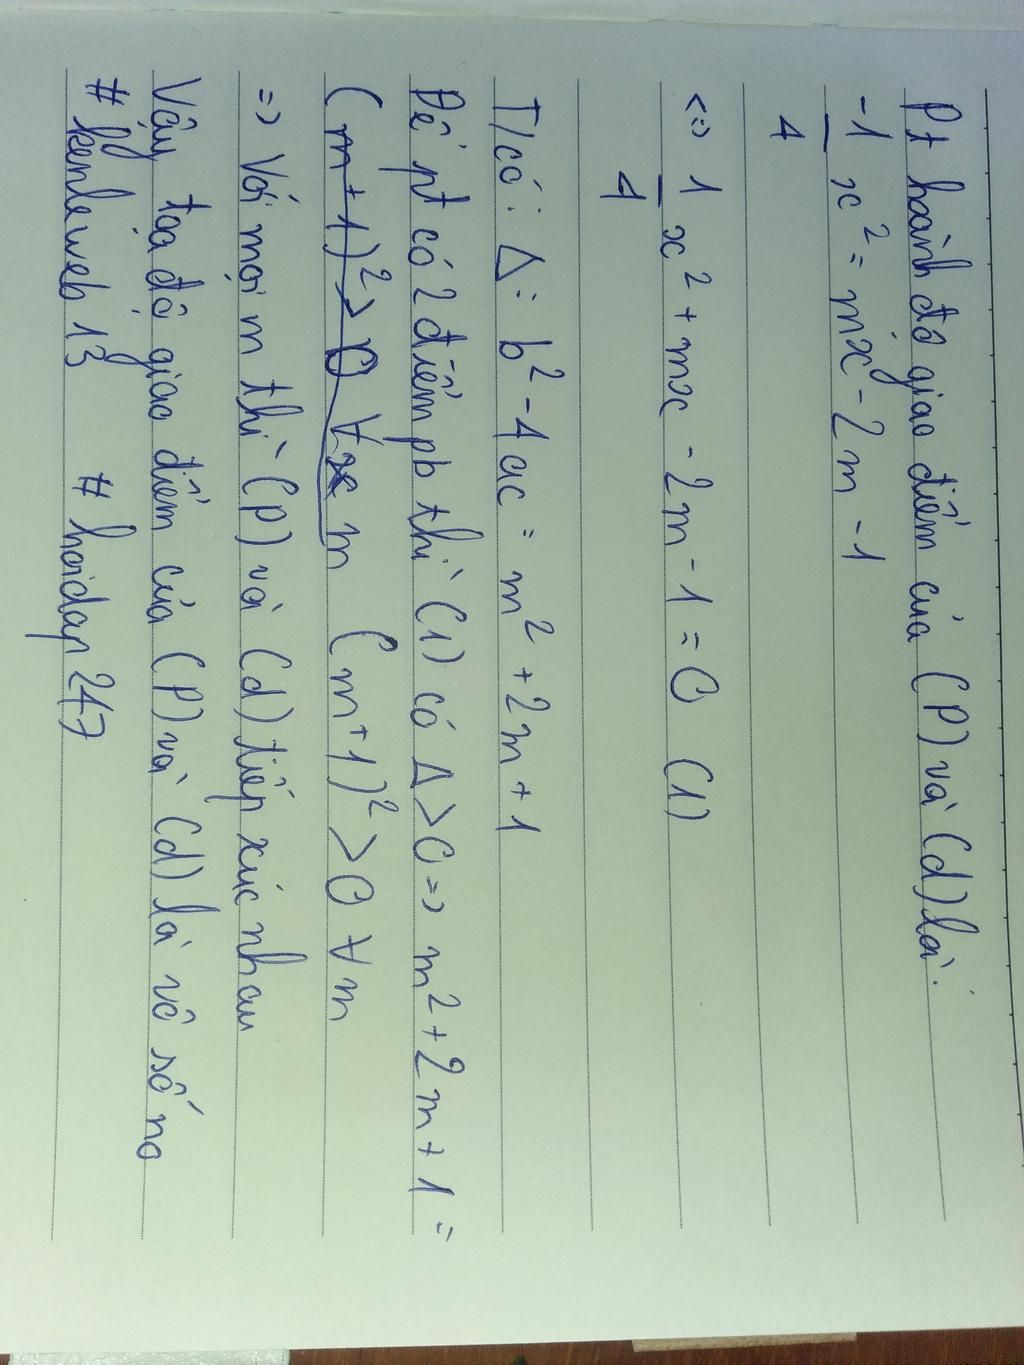 Pt hoành độ giao điểm của (P) và (d) là:
-1/4 x² = mx - 2m - 1
<=> 1/4 x² + mx - 2m - 1 = 0 (1)
T/có: Δ = b² - 4ac = m² + 2m + 1
Để pt có 2 điểm pb thì (1) có Δ > 0 => m² + 2m + 1 =
(m + 1)² > 0 ∀ m (m + 1)² > 0 ∀ m
=> Với mọi m thì (P) và (d) tiếp xúc nhau
Vậy tọa độ giao điểm của (P) và (d) là vô số no
# kenleweb13 # hoidap247